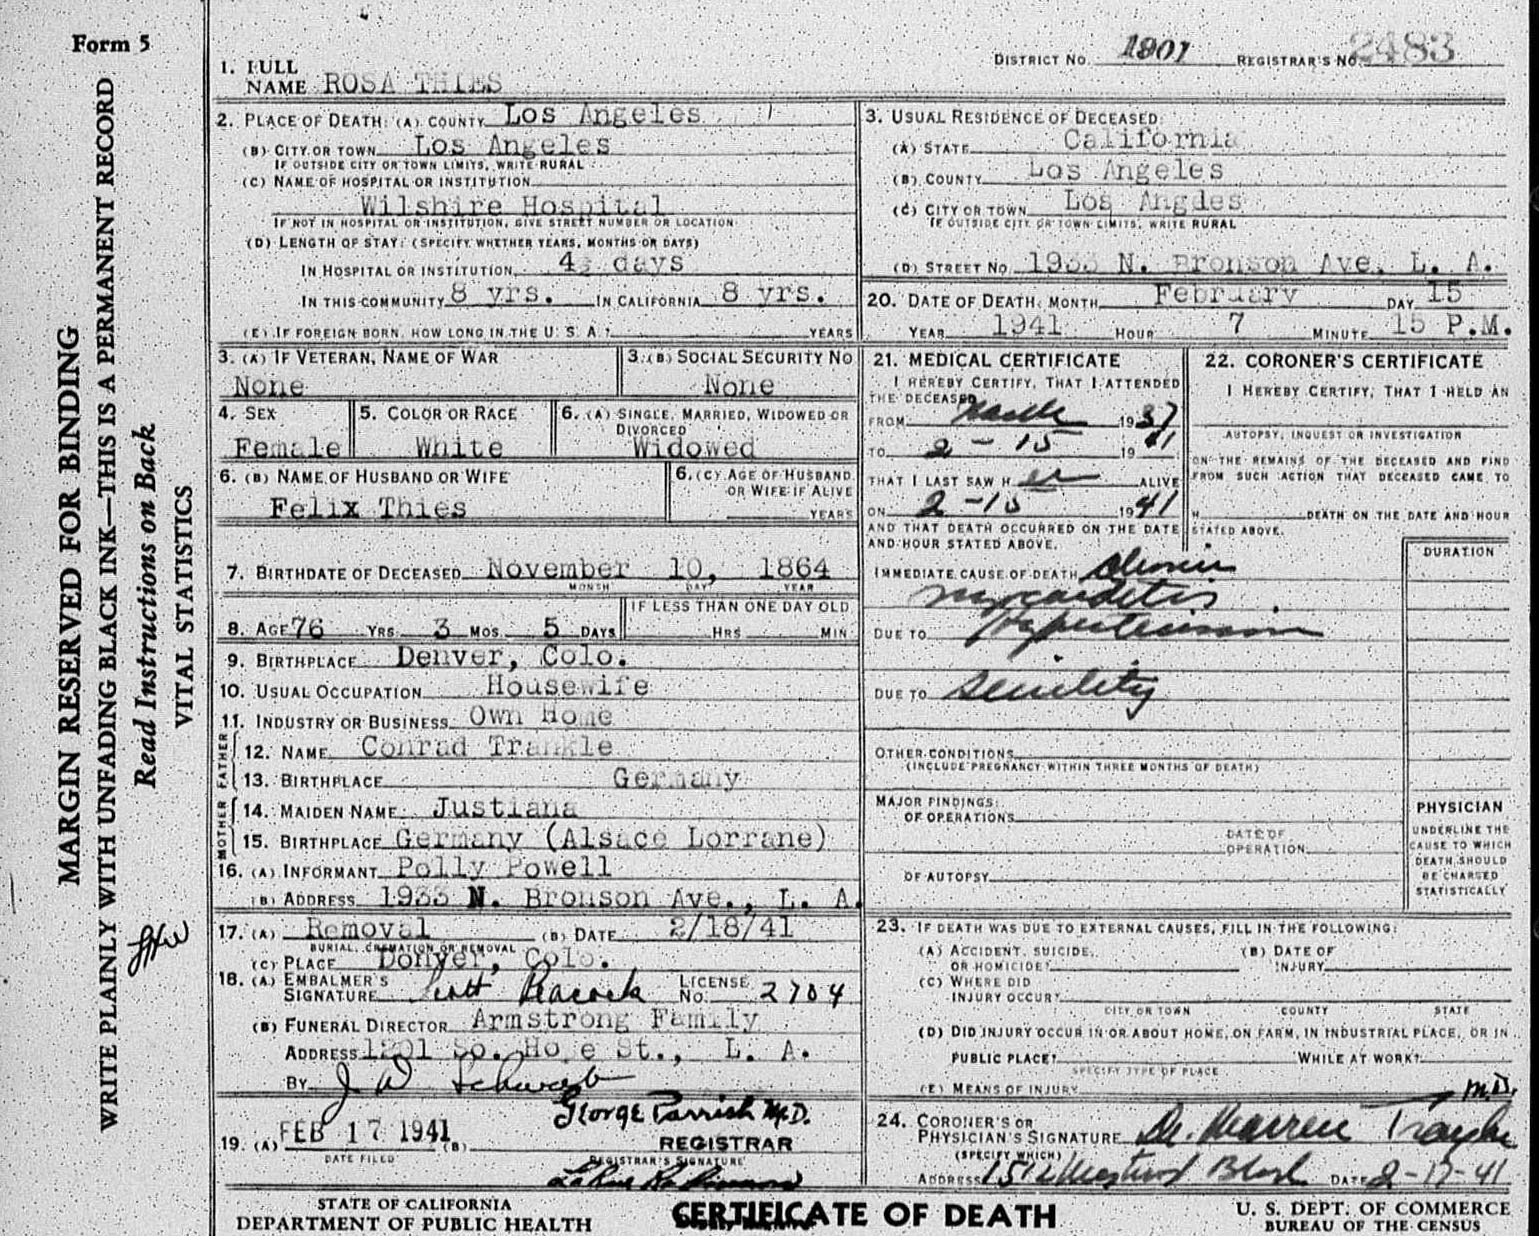 Form 5
MARGIN RESERVED FOR BINDING
WRITE PLAINLY WITH UNFADING BLACK INK—THIS IS A PERMANENT RECORD
Read Instructions on Back
VITAL STATISTICS
DISTRICT NO. 1901 REGISTRAR'S NO. 2483
1. FULL NAME ROSA THIES
2. PLACE OF DEATH: (A) COUNTY Los Angeles
(B) CITY OR TOWN Los Angeles
IF OUTSIDE CITY OR TOWN LIMITS, WRITE RURAL
(C) NAME OF HOSPITAL OR INSTITUTION
Wilshire Hospital
IF NOT IN HOSPITAL OR INSTITUTION, GIVE STREET NUMBER OR LOCATION
(D) LENGTH OF STAY: (SPECIFY WHETHER YEARS, MONTHS OR DAYS)
IN HOSPITAL OR INSTITUTION 4½ days
IN THIS COMMUNITY 8 yrs. IN CALIFORNIA 8 yrs.
(E) IF FOREIGN BORN, HOW LONG IN THE U.S.A? YEARS
3. USUAL RESIDENCE OF DECEASED:
(A) STATE California
(B) COUNTY Los Angeles
(C) CITY OR TOWN Los Angdes
IF OUTSIDE CITY OR TOWN LIMITS, WRITE RURAL
(D) STREET NO. 1933 N. Bronson Ave, L. A.
20. DATE OF DEATH: MONTH February DAY 15
YEAR 1941 HOUR 7 MINUTE 15 P.M.
3. (A) IF VETERAN, NAME OF WAR
None
3. (B) SOCIAL SECURITY NO
None
4. SEX
Female
5. COLOR OR RACE
White
6. (A) SINGLE, MARRIED, WIDOWED OR DIVORCED
Widowed
6. (B) NAME OF HUSBAND OR WIFE
Felix Thies
6. (C) AGE OF HUSBAND OR WIFE IF ALIVE
YEARS
7. BIRTHDATE OF DECEASED November 10, 1864
MONTH DAY YEAR
8. AGE 76 YRS. 3 MOS. 5 DAYS
IF LESS THAN ONE DAY OLD
HRS. MIN.
9. BIRTHPLACE Denver, Colo.
10. USUAL OCCUPATION Housewife
11. INDUSTRY OR BUSINESS Own Home
FATHER
12. NAME Conrad Trankle
13. BIRTHPLACE Germany
MOTHER
14. MAIDEN NAME: Justiana
15. BIRTHPLACE Germany (Alsace Lorrane)
16. (A) INFORMANT Polly Powell
(B) ADDRESS 1933 N. Bronson Ave., L. A.
17. (A) Removal (B) DATE 2/18/41
BURIAL, CREMATION OR REMOVAL
(C) PLACE Denver, Colo.
18. (A) EMBALMER'S SIGNATURE Scott Peacock LICENSE NO. 2704
(B) FUNERAL DIRECTOR Armstrong Family
ADDRESS 1201 So. Hope St., L. A.
BY J W Schwab
George Parrish M.D.
19. (A) FEB 17 1941 (B) REGISTRAR
DATE FILED REGISTRAR'S SIGNATURE
21. MEDICAL CERTIFICATE
I HEREBY CERTIFY, THAT I ATTENDED THE DECEASED
FROM 1937
TO 2-15 1941
THAT I LAST SAW H er ALIVE
ON 2-15 1941
AND THAT DEATH OCCURRED ON THE DATE AND HOUR STATED ABOVE.
22. CORONER'S CERTIFICATE
I HEREBY CERTIFY, THAT I HELD AN
AUTOPSY, INQUEST OR INVESTIGATION
ON THE REMAINS OF THE DECEASED AND FIND
FROM SUCH ACTION THAT DECEASED CAME TO
H DEATH ON THE DATE AND HOUR
STATED ABOVE.
DURATION
IMMEDIATE CAUSE OF DEATH Chronic
myocarditis
DUE TO Hypertension
DUE TO Senility
OTHER CONDITIONS
(INCLUDE PREGNANCY WITHIN THREE MONTHS OF DEATH)
MAJOR FINDINGS:
OF OPERATIONS
DATE OF OPERATION
OF AUTOPSY
PHYSICIAN
UNDERLINE THE
CAUSE TO WHICH
DEATH SHOULD
BE CHARGED
STATISTICALLY
23. IF DEATH WAS DUE TO EXTERNAL CAUSES, FILL IN THE FOLLOWING:
(A) ACCIDENT, SUICIDE, OR HOMICIDE? (B) DATE OF INJURY
(C) WHERE DID INJURY OCCUR?
CITY OR TOWN COUNTY STATE
(D) DID INJURY OCCUR IN OR ABOUT HOME, ON FARM, IN INDUSTRIAL PLACE, OR IN
PUBLIC PLACE? WHILE AT WORK?
SPECIFY TYPE OF PLACE
(E) MEANS OF INJURY
M.D.
24. CORONER'S OR PHYSICIAN'S SIGNATURE Dr. Warren
(SPECIFY WHICH)
ADDRESS DATE 2-17-41
STATE OF CALIFORNIA
DEPARTMENT OF PUBLIC HEALTH
CERTIFICATE OF DEATH
U. S. DEPT. OF COMMERCE
BUREAU OF THE CENSUS